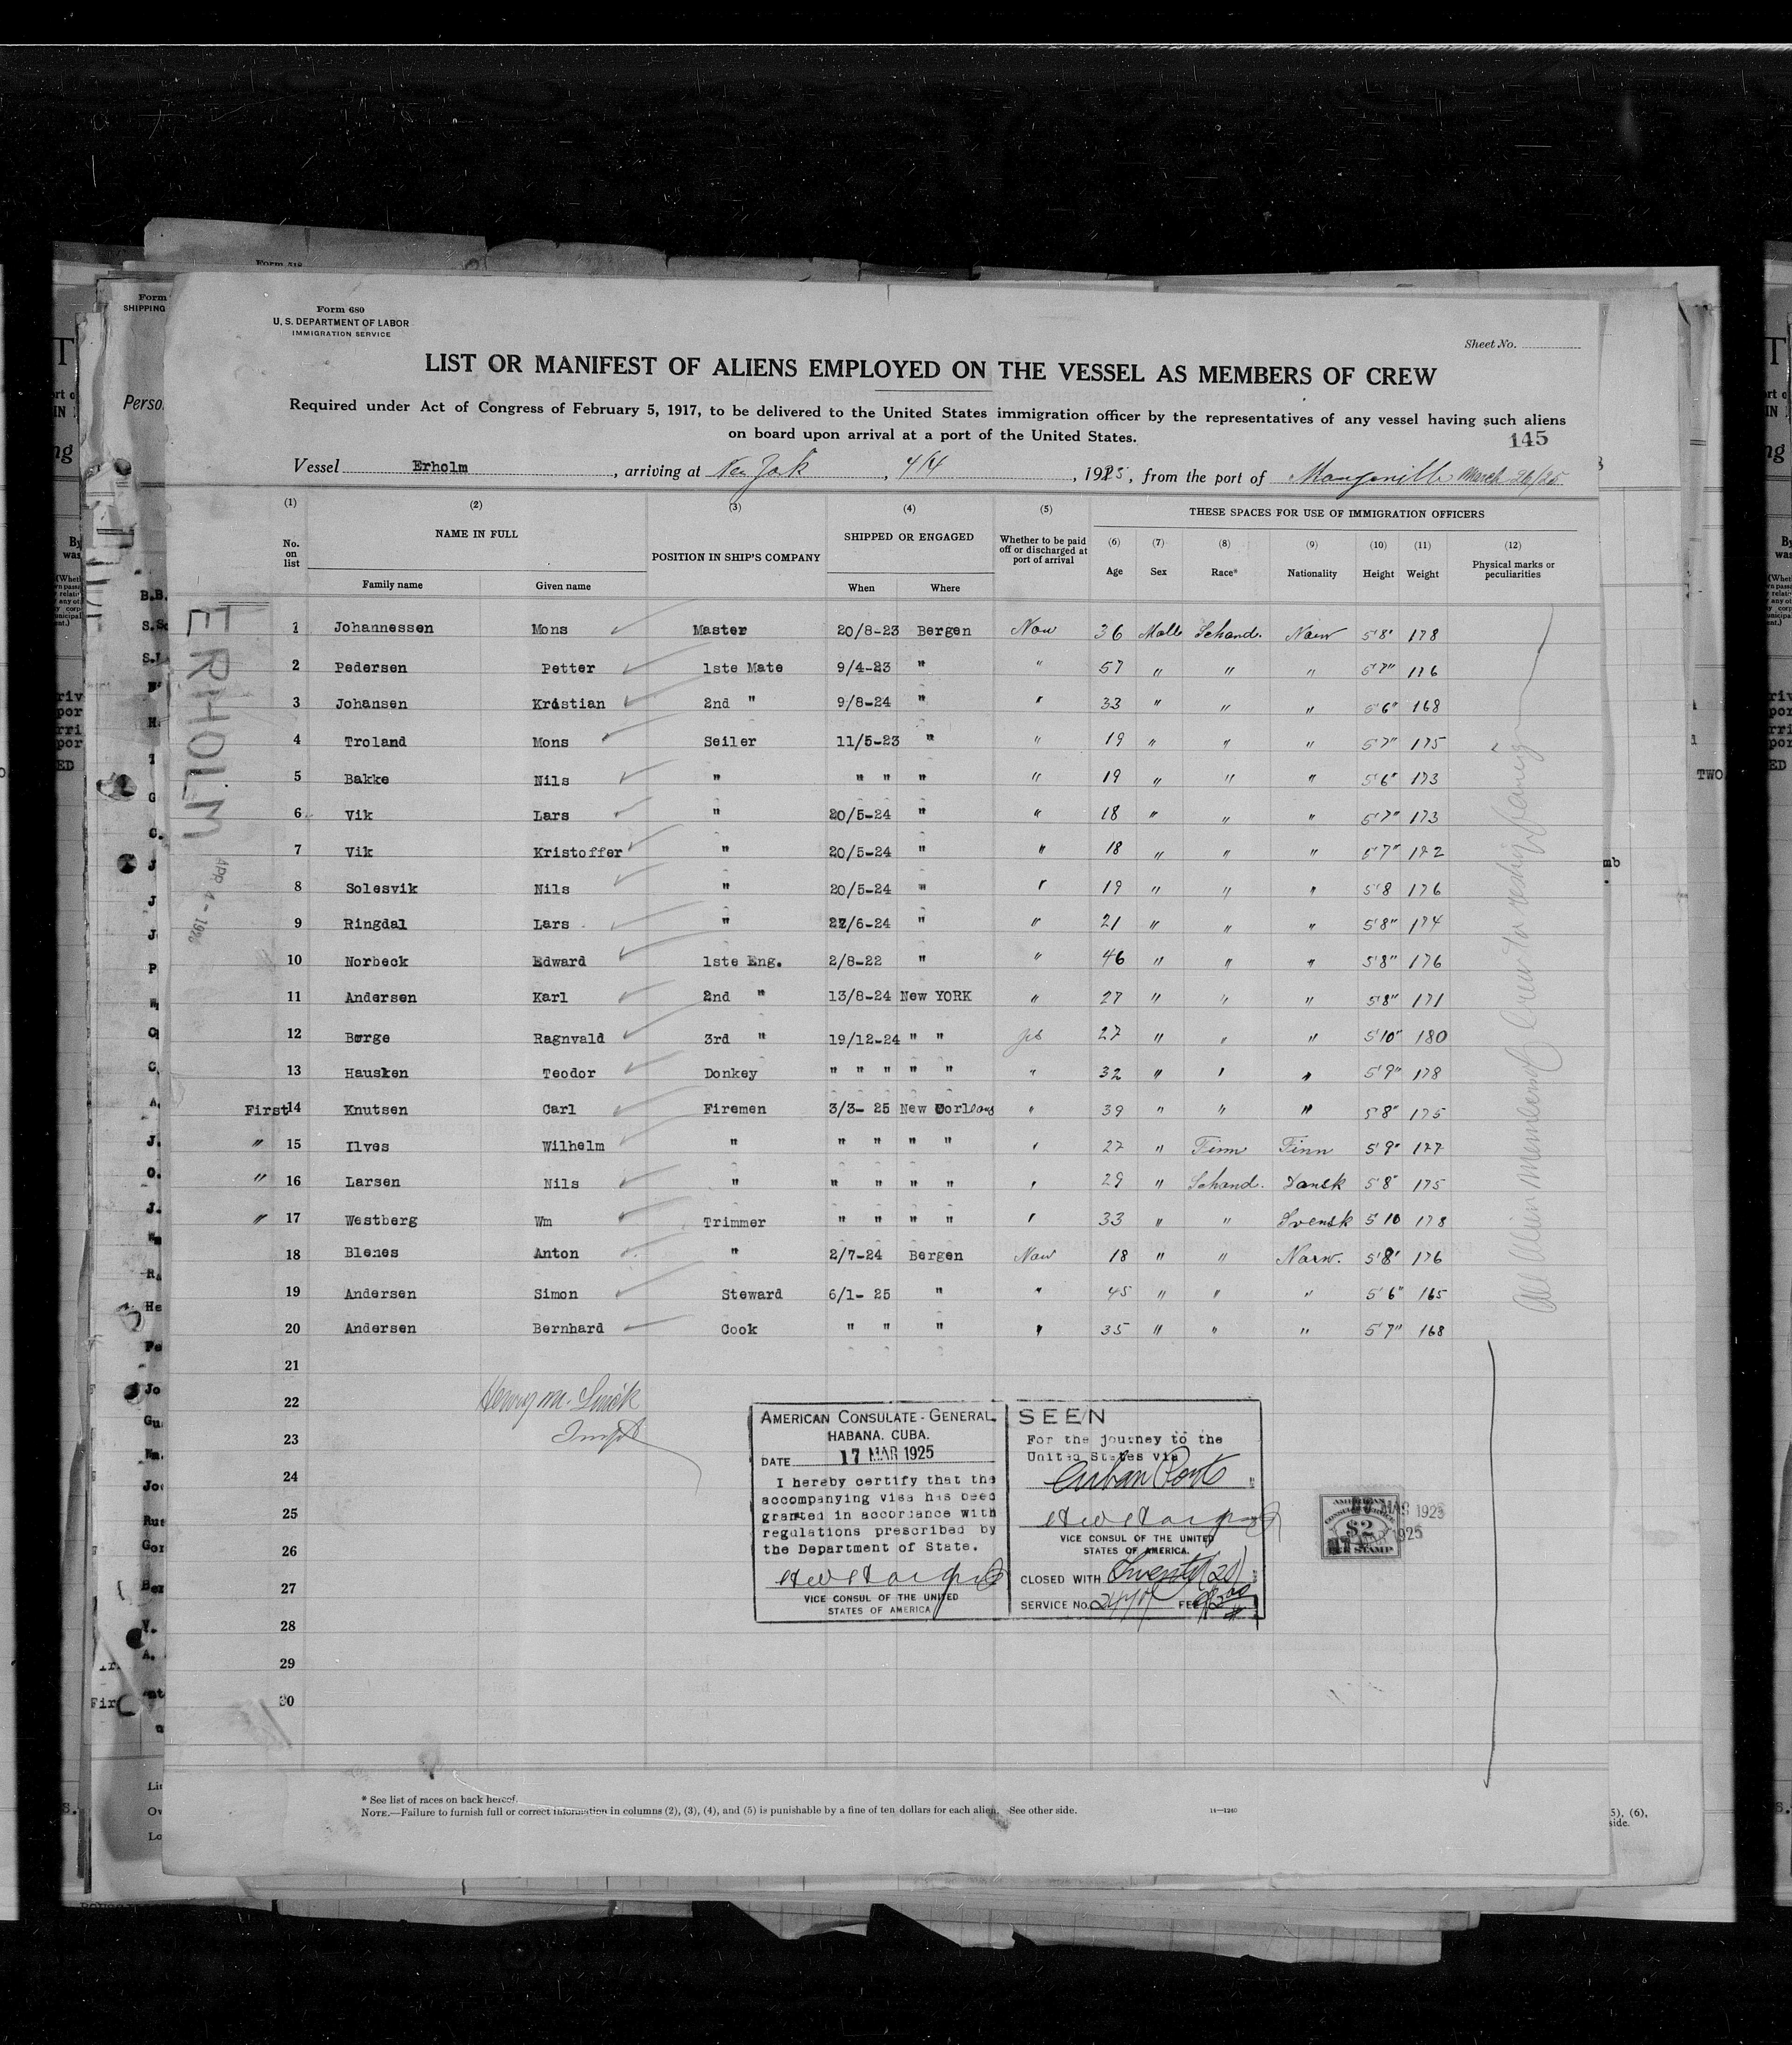 Form 680
U. S. DEPARTMENT OF LABOR
IMMIGRATION SERVICE
Sheet No.
LIST OR MANIFEST OF ALIENS EMPLOYED ON THE VESSEL AS MEMBERS OF CREW
Required under Act of Congress of February 5, 1917, to be delivered to the United States immigration officer by the representatives of any vessel having such aliens
on board upon arrival at a port of the United States.
145
Vessel Erholm, arriving at New York, 4/4, 1925, from the port of March 26/25
(1) (2) (3) (4) (5) THESE SPACES FOR USE OF IMMIGRATION OFFICERS
No. on list NAME IN FULL POSITION IN SHIP'S COMPANY SHIPPED OR ENGAGED Whether to be paid off or discharged at port of arrival (6) Age (7) Sex (8) Race* (9) Nationality (10) Height (11) Weight (12) Physical marks or peculiarities
Family name Given name When Where
1 Johannessen Mons Master 20/8-23 Bergen Now 36 Malle Schand. Norw 5'8" 178
2 Pedersen Petter 1ste Mate 9/4-23 " " 57 " " " 5'7" 176
3 Johansen Kristian 2nd " 9/8-24 " " 33 " " " 5'6" 168
4 Troland Mons Seiler 11/5-23 " " 19 " " " 5'7" 175
5 Bakke Nils " " " " " 19 " " " 5'6" 173
6 Vik Lars " 20/5-24 " " 18 " " " 5'7" 173
7 Vik Kristoffer " 20/5-24 " " 18 " " " 5'7" 172
8 Solesvik Nils " 20/5-24 " " 19 " " " 5'8 176
9 Ringdal Lars " 22/6-24 " " 21 " " " 5'8" 174
10 Norbeck Edward 1ste Eng. 2/8-22 " " 46 " " " 5'8" 176
11 Andersen Karl 2nd " 13/8-24 New YORK " 27 " " " 5'8" 171
12 Børge Ragnvald 3rd " 19/12-24 " " 27 " " " 5'10" 180
13 Hausken Teodor Donkey " " " " " " 32 " " " 5'9" 178
First 14 Knutsen Carl Firemen 3/3- 25 New Oorleans " 39 " " " 5'8" 175
" 15 Ilves Wilhelm " " " " " " 27 " Finn Finn 5'9" 177
" 16 Larsen Nils " " " " " " 29 " Schand. Dansk 5'8" 175
" 17 Westberg Wm Trimmer " " " " " 33 " " Svensk 5'10 178
18 Blenes Anton " 2/7-24 Bergen Now 18 " " Norw. 5'8" 176
19 Andersen Simon Steward 6/1- 25 " " 45 " " " 5'6" 165
20 Andersen Bernhard Cook " " " " 35 " " " 5'7" 168
21
22
23
24
25
26
27
28
29
30
ERHOLM
APR 4 - 1925
Henry M.
Insp
AMERICAN CONSULATE-GENERAL
HABANA. CUBA.
DATE 17 MAR 1925
I hereby certify that the
accompanying visa has been
granted in accordance with
regulations prescribed by
the Department of State.
VICE CONSUL OF THE UNITED
STATES OF AMERICA
SEEN
For the journey to the
United States via
Cuban Ports
VICE CONSUL OF THE UNITED
STATES OF AMERICA.
CLOSED WITH Twenty (20)
SERVICE No. FEE
AMERICAN
CONSULAR SERVICE
$2
FEE STAMP
MAR 1925
* See list of races on back hereof.
NOTE.—Failure to furnish full or correct information in columns (2), (3), (4), and (5) is punishable by a fine of ten dollars for each alien. See other side.
14—1240